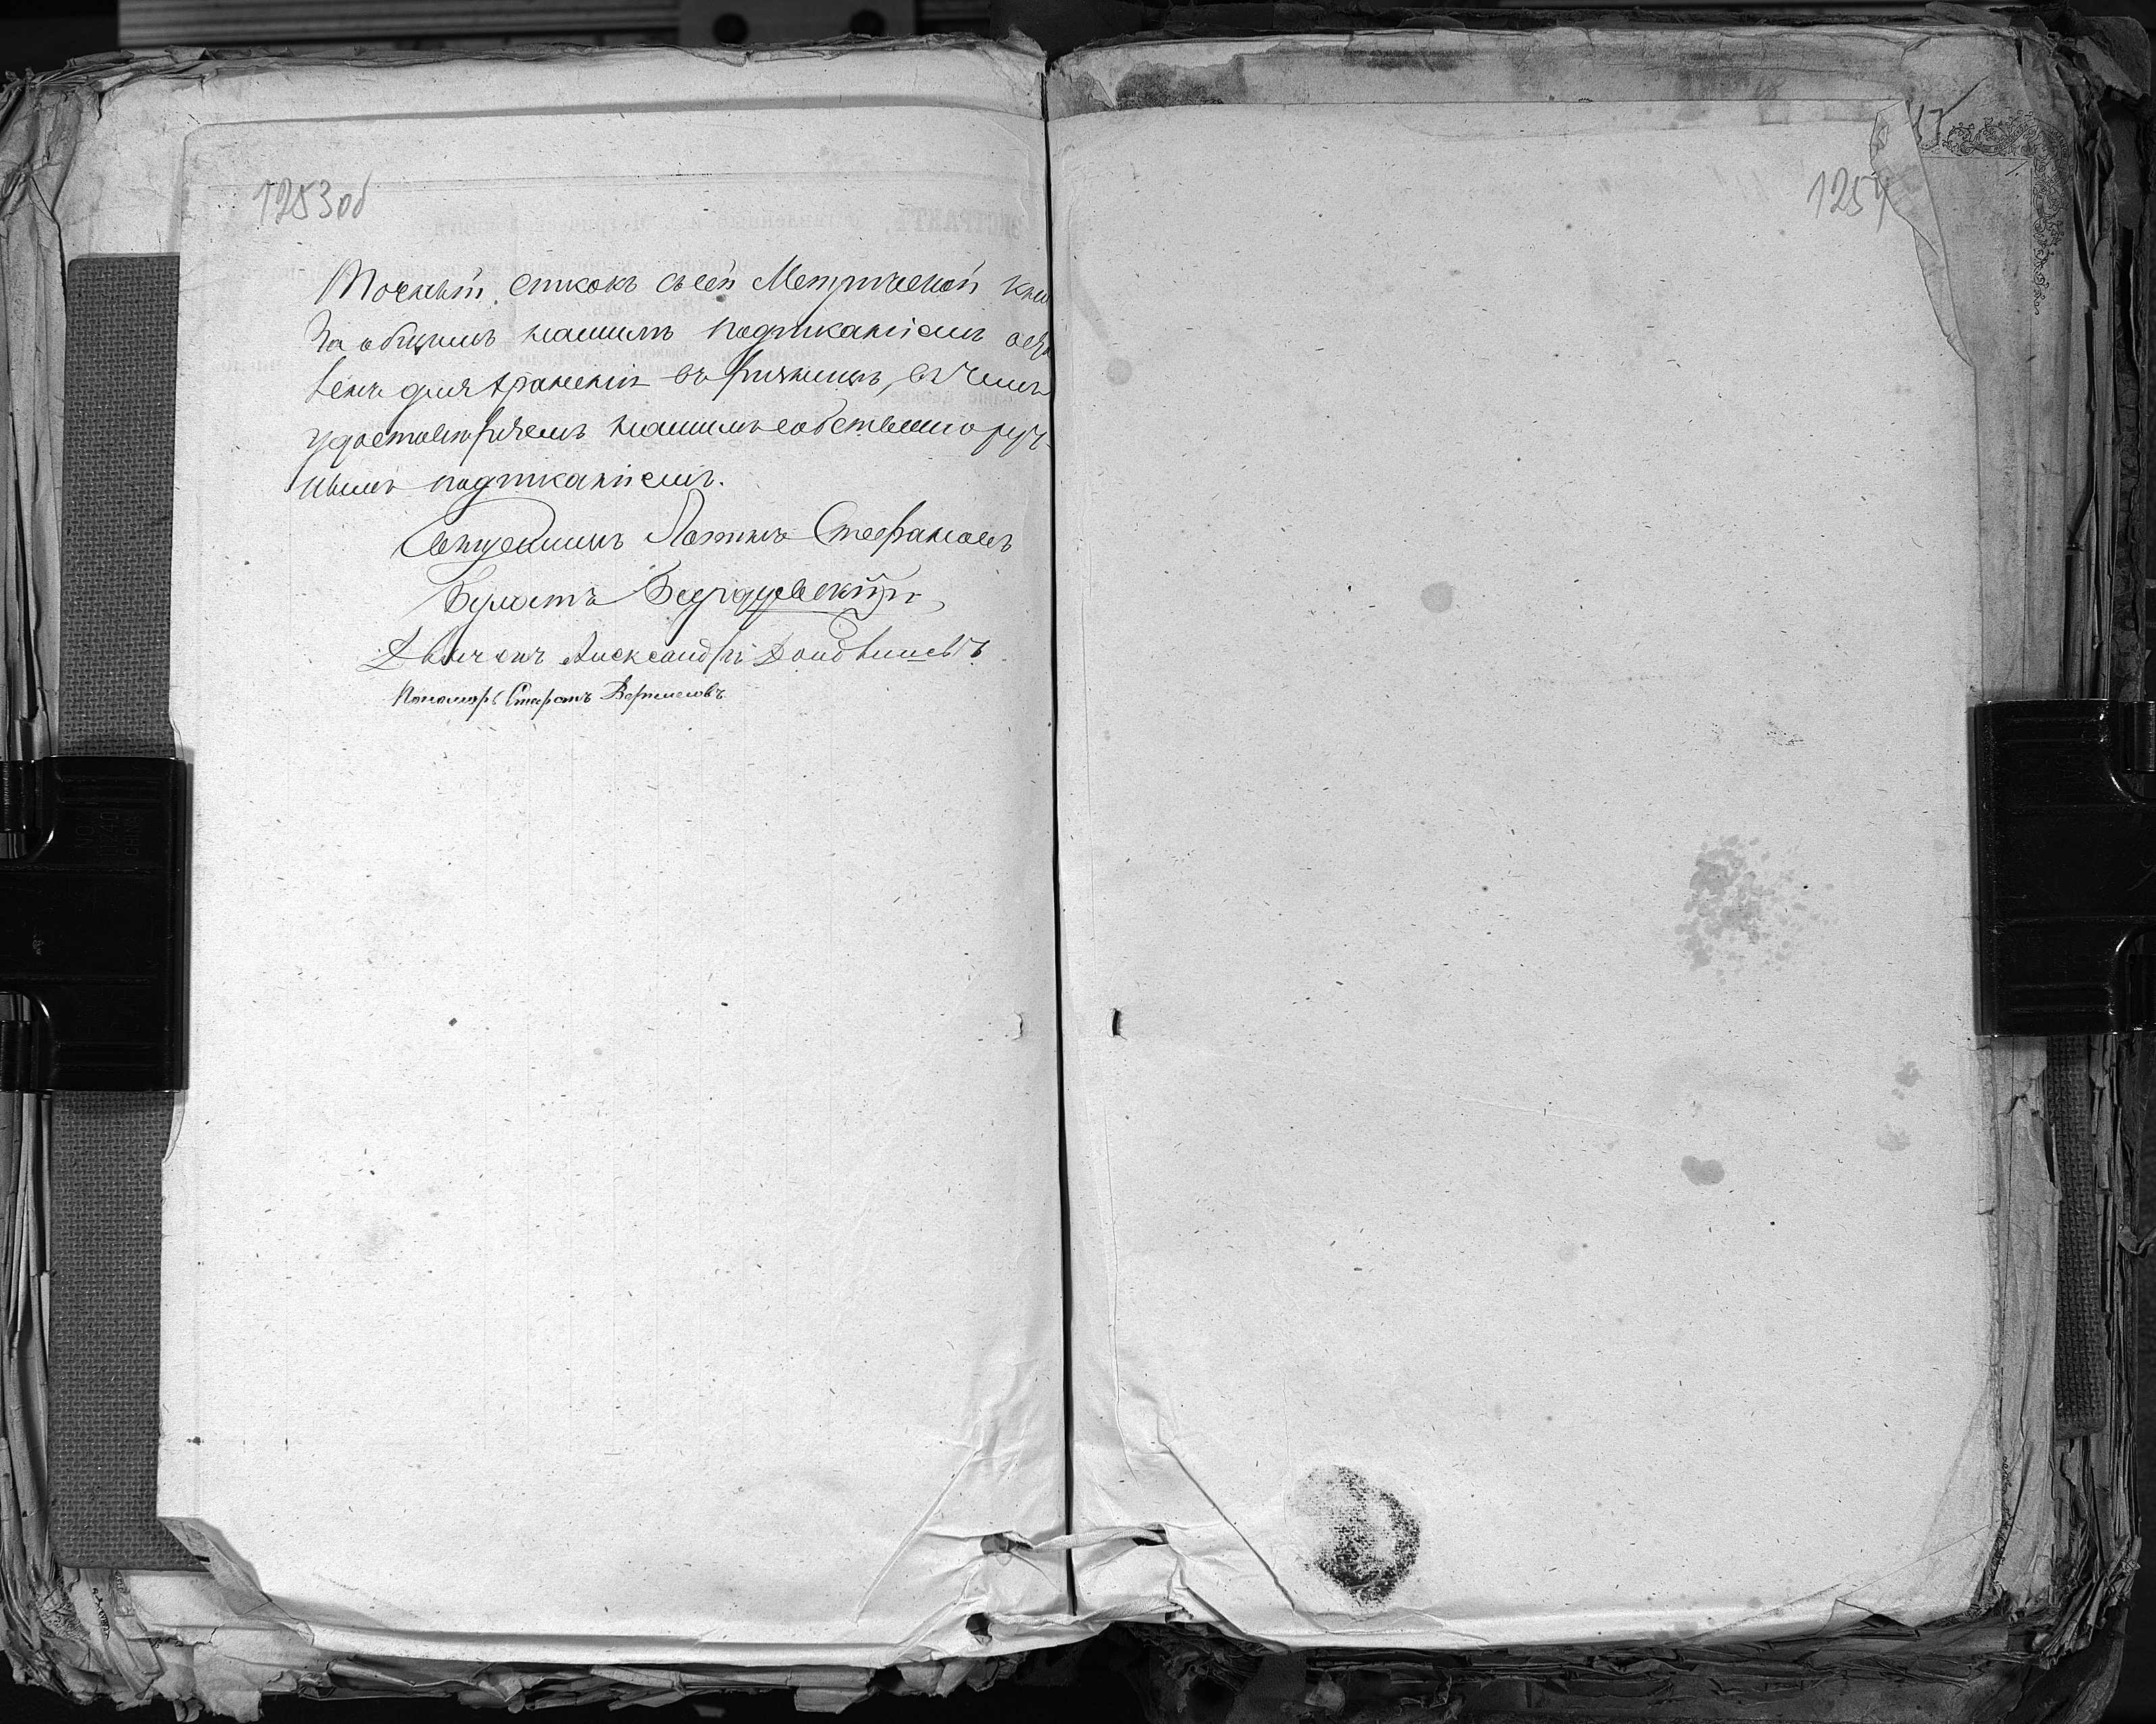 1253об
1254
Точный список съ сей Метрической кни
За общимъ нашимъ подписаніемъ остав
ленъ для храненія въ ризницѣ, въ чемъ
удостовѣряемъ нашимъ собственноруч-
нымъ подписаніемъ.
Священникъ Стефановъ
Дьячекъ Александръ
Пономарь Стефанъ